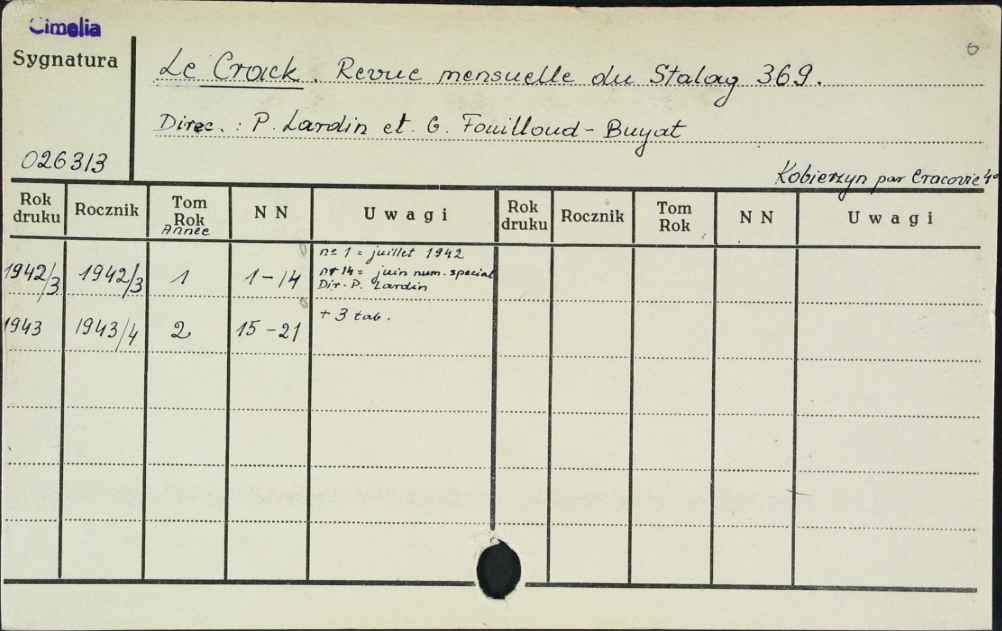 Cimelia
Sygnatura
Le Crack. Revue mensuelle du Stalag 369.
Direc. : P. Lardin et G. Fouilloud - Buyat
026313
Kobierzyn par Cracovie 4°
Rok druku Rocznik Tom Rok Année N N Uwagi Rok druku Rocznik Tom Rok N N Uwagi
1942/3 1942/3 1 1-14 nr 1 = juillet 1942
nr 14 = juin num. special
Dir. P. Lardin
1943 1943/4 2 15-21 + 3 tab.